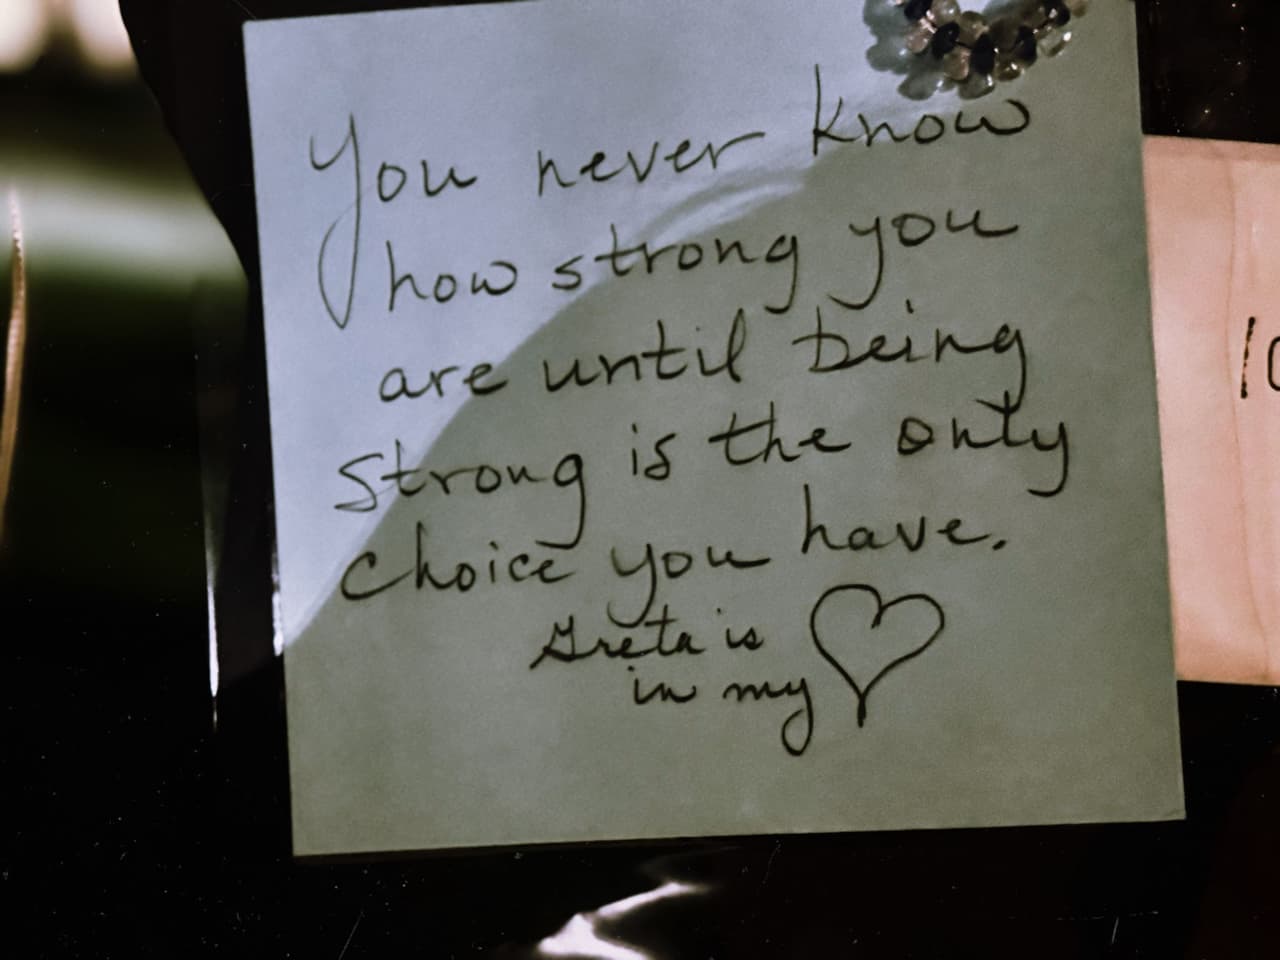 You never know
how strong you
are until being
strong is the only
choice you have.
Greta is
in my
10